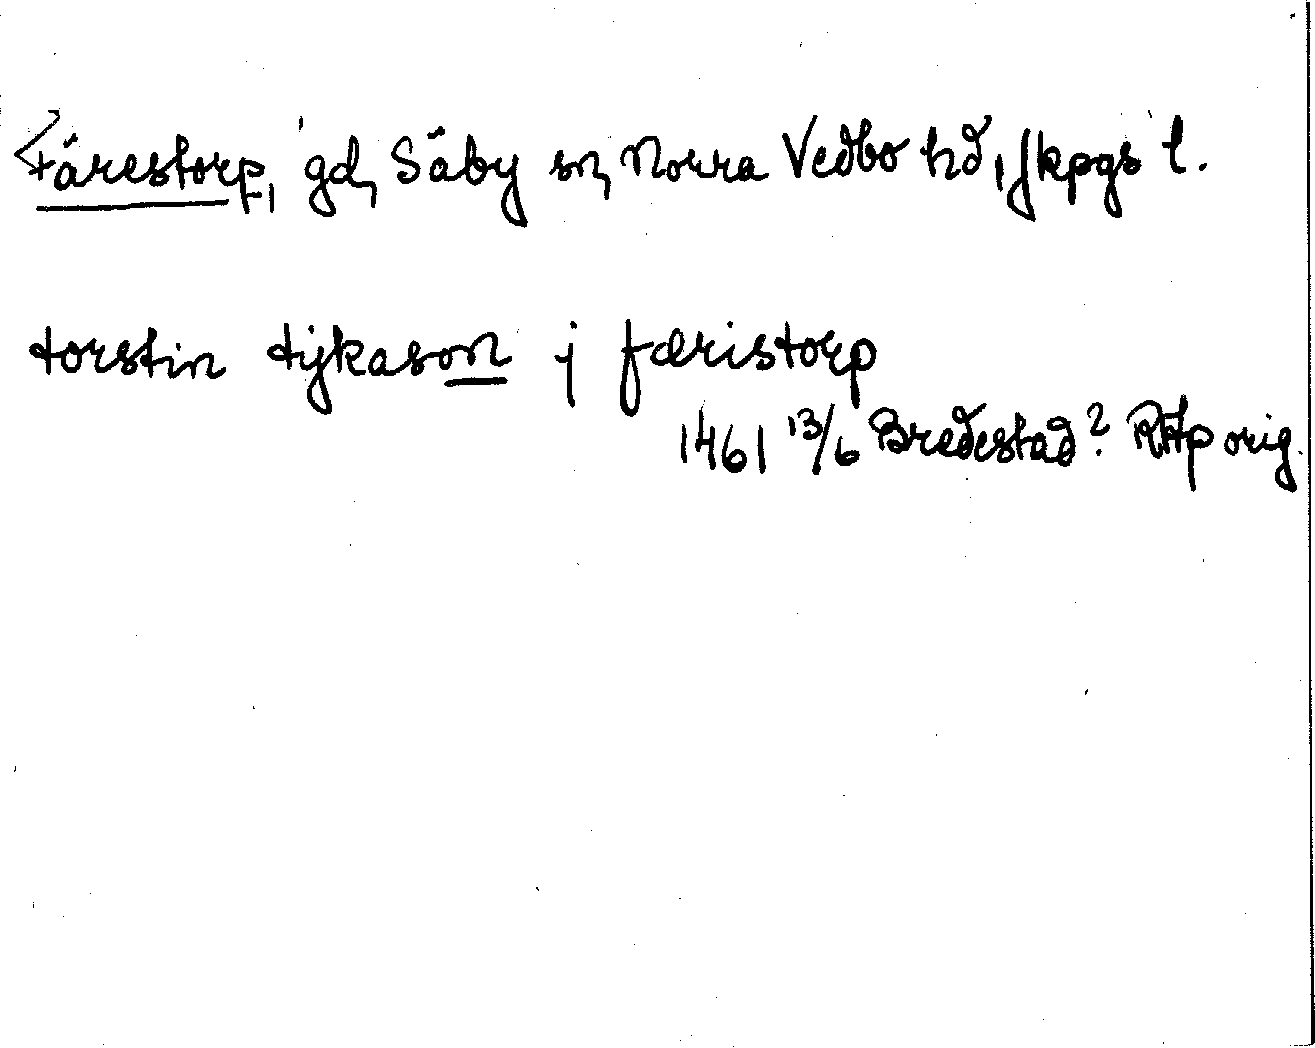 Färestorp, gd, Säby sn, Norra Vedbo hd, Jkpgs l.
torstin tykason j færistorp
1461 13/6 Bredestad? RAp orig.